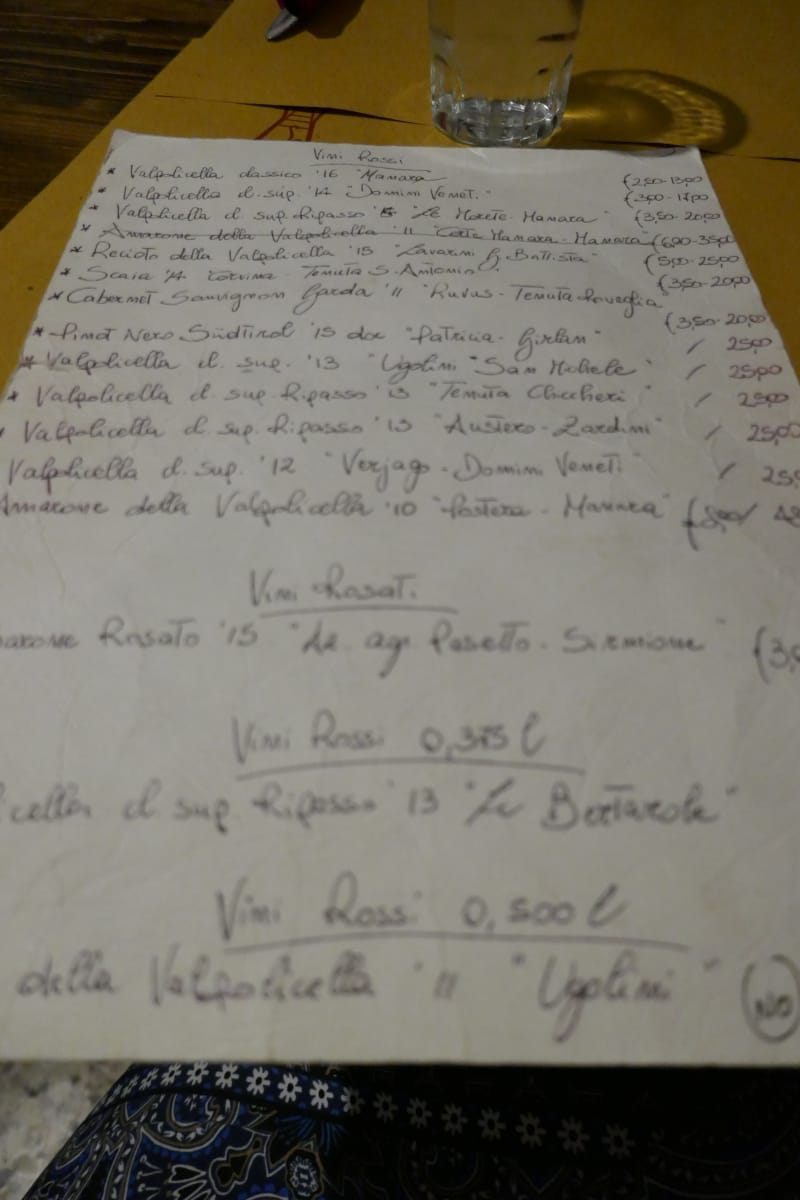 Vini Rossi
* Valpolicella classico '16 "Mamara (2,50-13,00
* Valpolicella cl. sup. '14 "Domini Veneti" (3,00-17,00
* Valpolicella cl. sup. Ripasso "Le Morete-Mamara" (3,50-20,00
* Amarone della Valpolicella '11 "Corte Mamara-Mamara" (6,00-35,00
* Recioto della Valpolicella '15 "Lavarini G. Battista" (5,00-25,00
* Scaia '14 corvina - Tenuta S. Antonio (3,50-20,00
* Cabernet Sauvignon Garda '11 "Rufus-Tenuta Roveglia (3,50-20,00
* Pinot Nero Südtirol '15 doc "Patricia-Girlan" / 25,00
* Valpolicella cl. sup. '13 "Ugolini "San Michele" / 25,00
* Valpolicella cl. sup. Ripasso '13 "Tenuta Chiccheri" / 25,00
* Valpolicella cl. sup. Ripasso '13 "Austero-Zardini" / 25,00
Valpolicella cl. sup. '12 "Verjago-Domini Veneti" / 25,
Amarone della Valpolicella '10 "Postera-Mamara" (8,00/
Vini Rosati
Rosato '15 "Az. agr. Pasetto-Sirmione" (3,
Vini Rossi 0,375 l
cella cl. sup. Ripasso '13 "Le Bertarole"
Vini Rossi 0,500 l
della Valpolicella '11 "Ugolini" NO